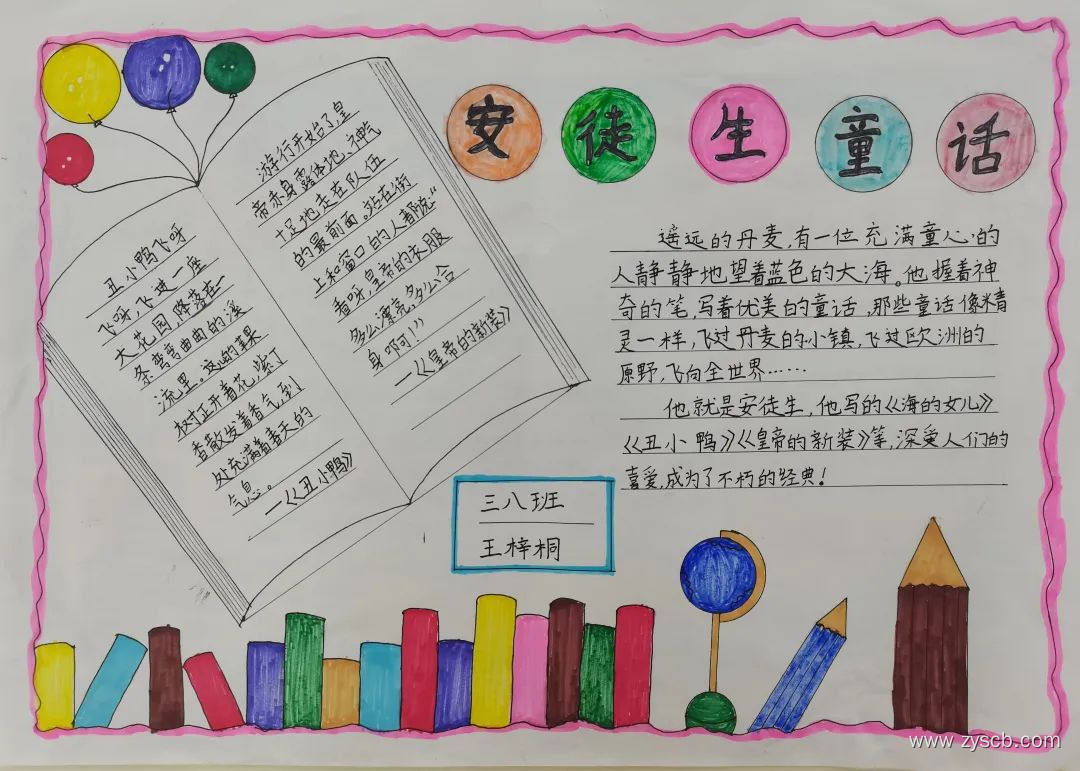 安徒生童话
丑小鸭飞呀
飞呀,飞过一座
大花园,降落在一
条弯弯曲曲的溪
流里。这时苹果
树正开着花,紫丁
香散发着香气,到
处充满着春天的
气息。
—《丑小鸭》
游行开始了,皇
帝赤身露体地、神气
十足地走在队伍
的最前面。站在街
上和窗口的人都说:“
看呀,皇帝的衣服
多么漂亮,多么合
身啊!”
—《皇帝的新装》
遥远的丹麦,有一位充满童心的
人静静地望着蓝色的大海。他握着神
奇的笔,写着优美的童话,那些童话像精
灵一样,飞过丹麦的小镇,飞过欧洲的
原野,飞向全世界……
他就是安徒生,他写的《海的女儿》
《丑小鸭》《皇帝的新装》等,深受人们的
喜爱,成为了不朽的经典!
三八班
王梓桐
www.zyscb.com